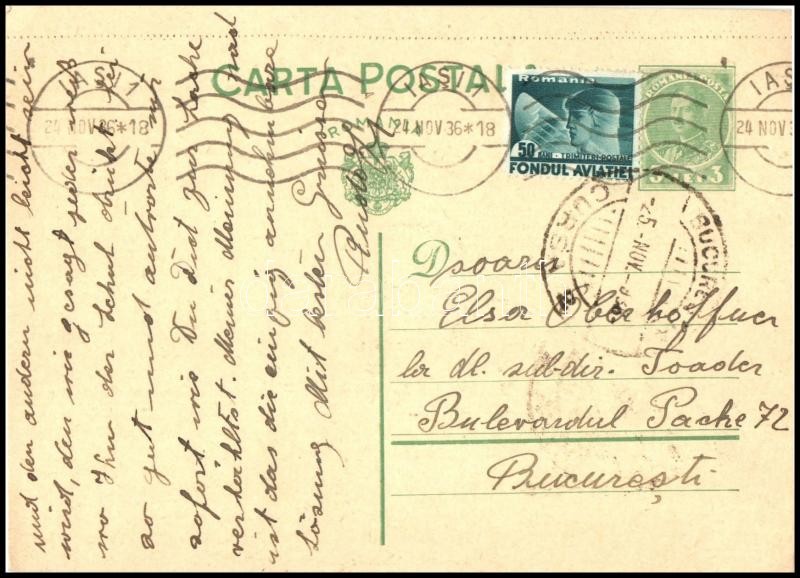 CARTA POSTALA
IASI 1
24 NOV 36*18
IASI
24 NOV 36*18
IAS
24 NOV 3
ROMANIA
România
50 BANI - TRIMITERI-POSTALE
FONDUL AVIATIEI
ROMANIA-POSTA
3 LEI 3
BUCUREȘTI
25-NOV
Dsoara
Elsa Oberhoffner
la dl. sub-dir. Toader
Bulevardul Pache 72
București
und den andern nicht leicht sein
wird, den wie gesagt jeder weiß
wo ihm der Schuh drückt sei
so gut und antworte mir
sofort wie Du Dich zur Sache
verhältst. Meiner Meinung nach
ist das die einzig annehmbare
Lösung Mit besten Grüssen